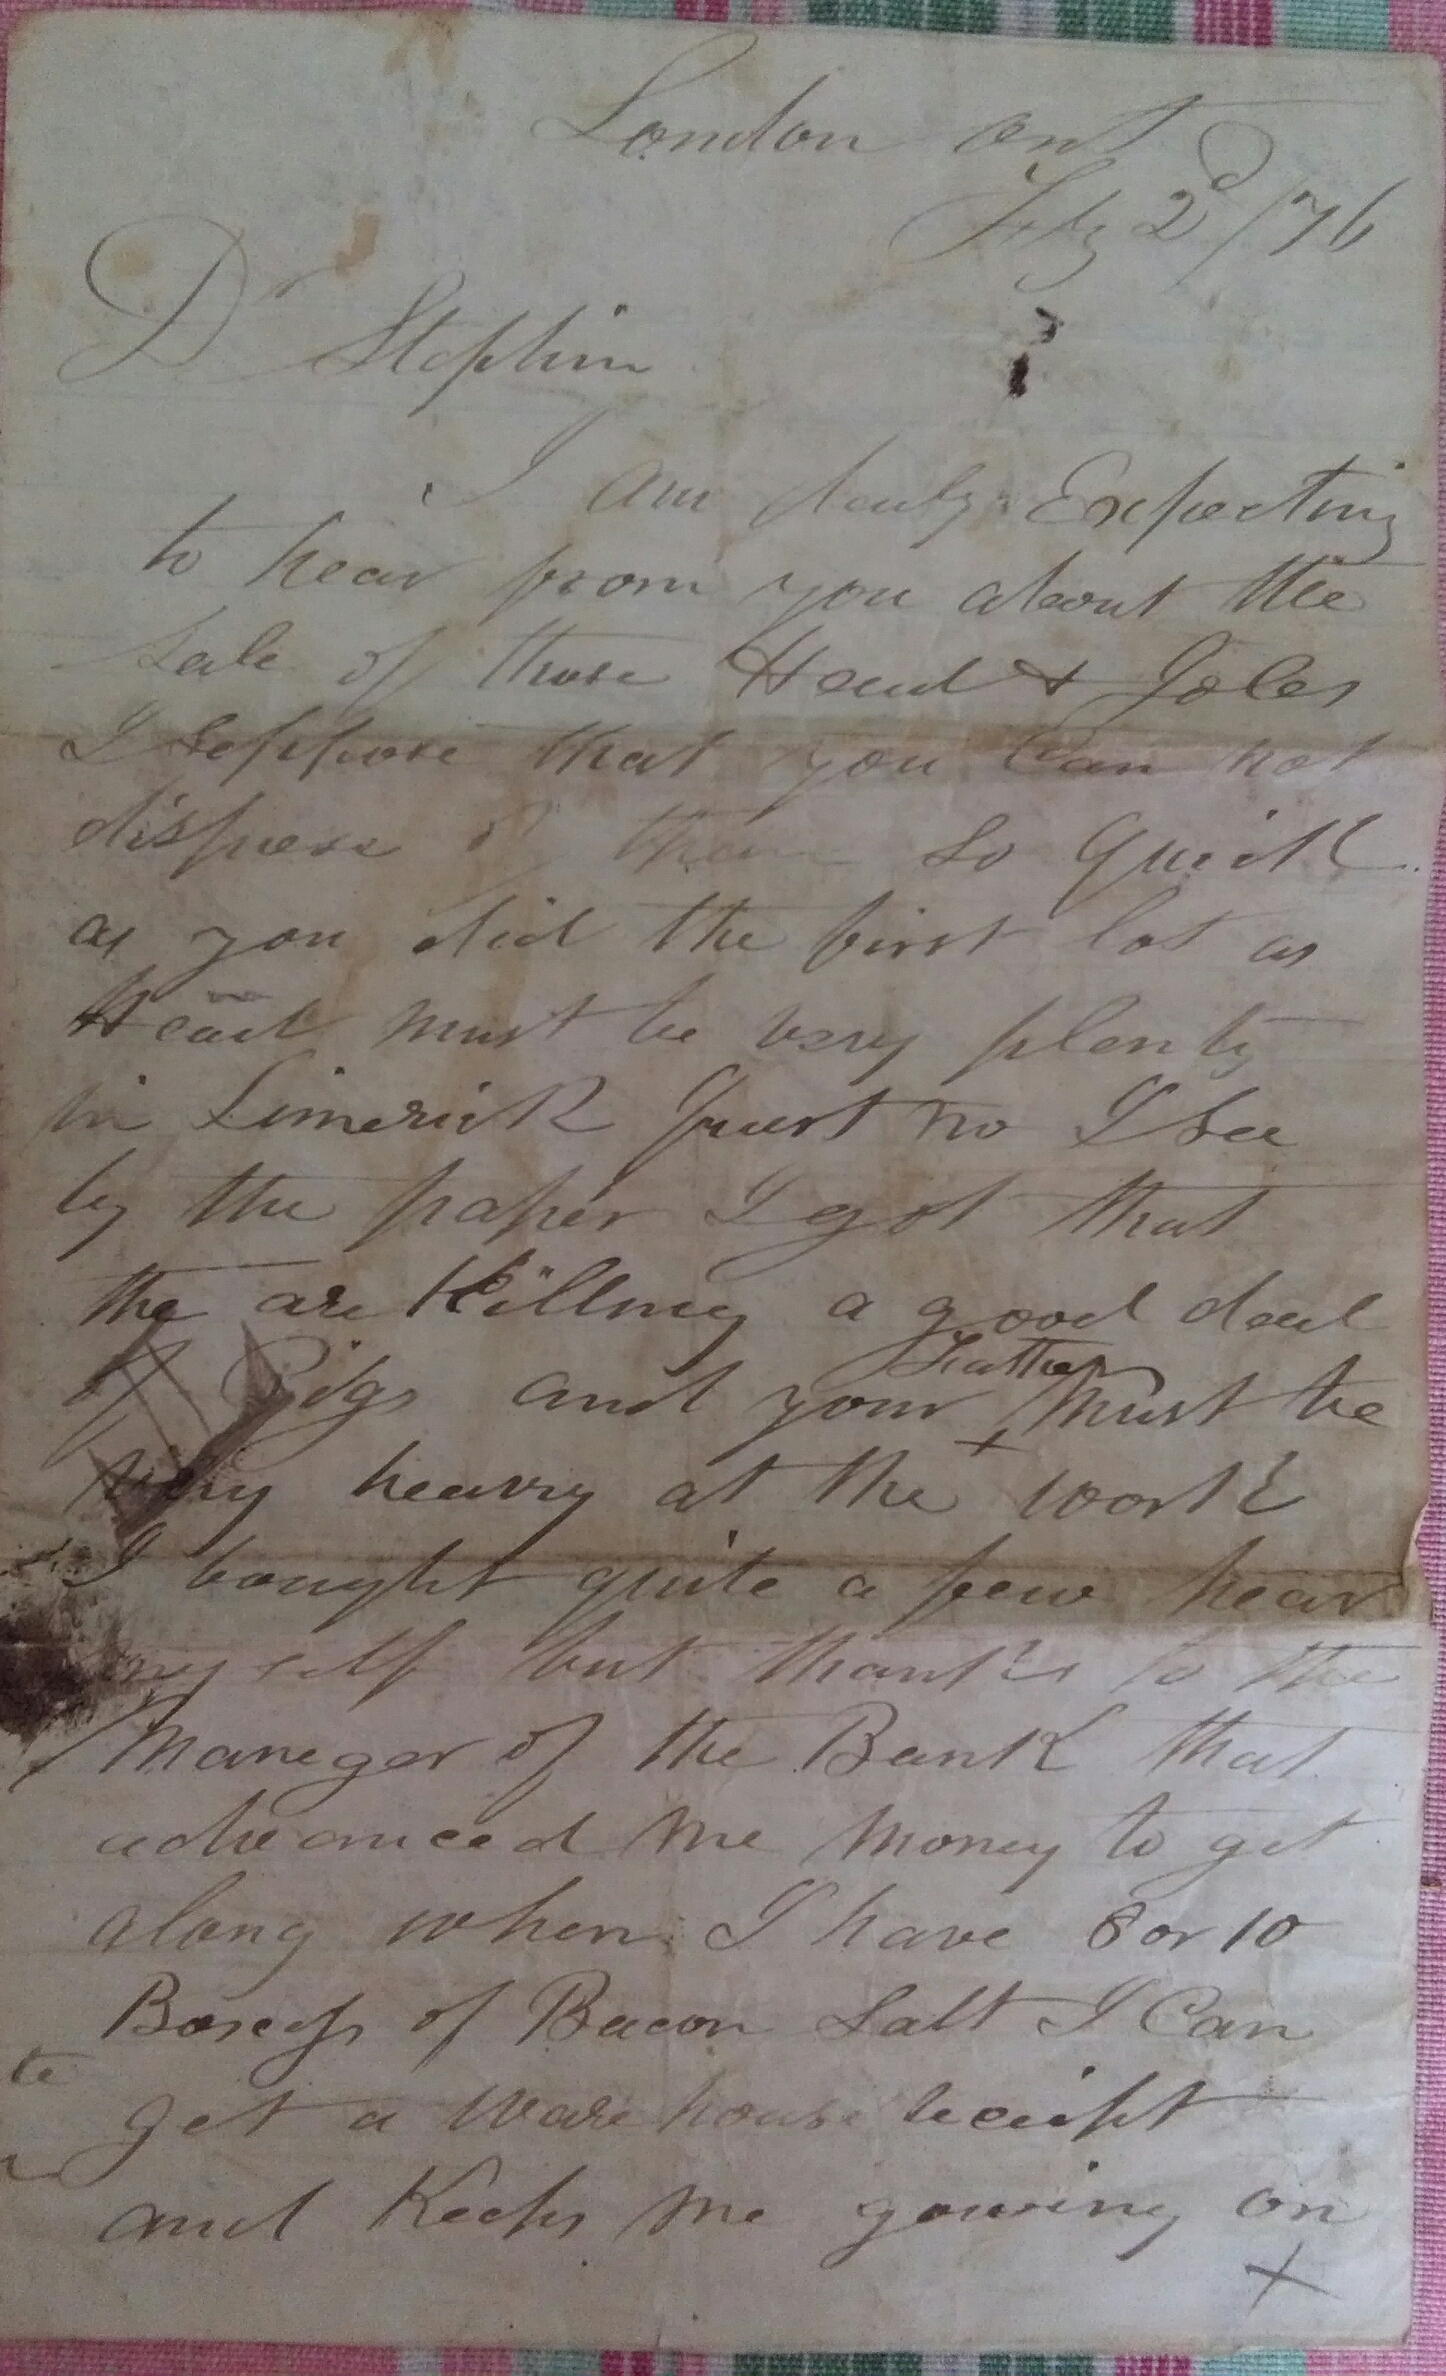 London Ont
Feby 2d /76
Dr Stephin
I am dealy Expecting
to hear from you about the
Sale of those Head & Joles
I Seppose that you Can not
dispose of them so Quick
as you did the first lot as
Head must be very plenty
in Limerick Just no I See
by the paper I got that
the are Killing a good deal
of Pigs and your Father must be
very heavy at the work
I bought quite a few hear
my self but thanks to the
Maneger of the Bank that
advanced me money to get
along when I have 8 or 10
Boxess of Bacon Salt I Can
get a Ware house receipt
and Keeps me gowing on
x